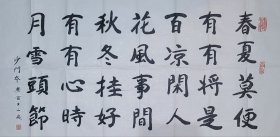 春有百花秋有月
夏有涼風冬有雪
莫將閑事挂心頭
便是人間好時節
沙門